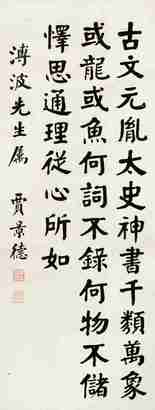 古文元胤太史神書千類萬象
或龍或魚何詞不錄何物不儲
懌思通理從心所如
溥波先生属
賈景德